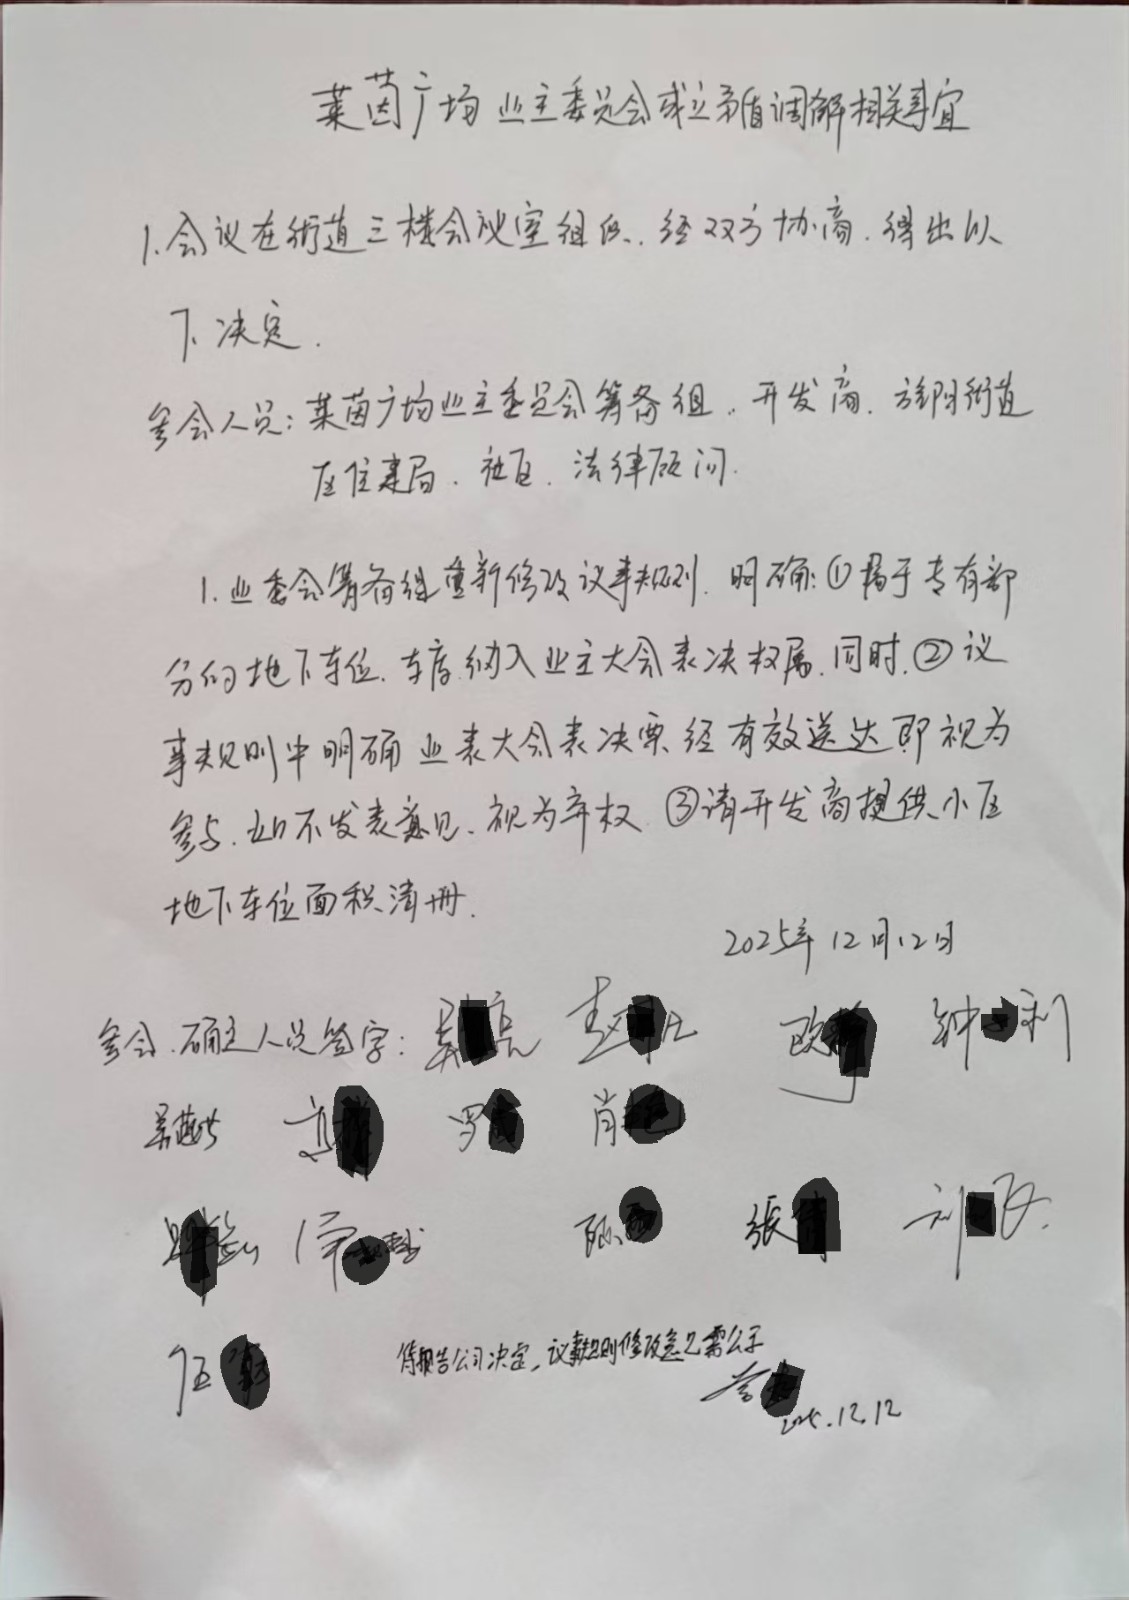 莱茵广场业主委员会成立矛盾调解相关事宜
1.会议在街道三楼会议室组织.经双方协商.得出以
下决定.
参会人员:莱茵广场业主委员会筹备组.开发商.街道
区住建局.社区.法律顾问.
1.业委会筹备组重新修改议事规则.明确:①属于专有部
分的地下车位.车库纳入业主大会表决权属.同时.②议
事规则中明确业表大会表决票经有效送达即视为
参与.如不发表意见.视为弃权.③请开发商提供小区
地下车位面积清册.
2025年12月12日
参会.确定人员签字: 欧 钟 利
罗 肖
張 刘
伍 待报告公司决定,议事规则修改意见需公示
2025.12.12